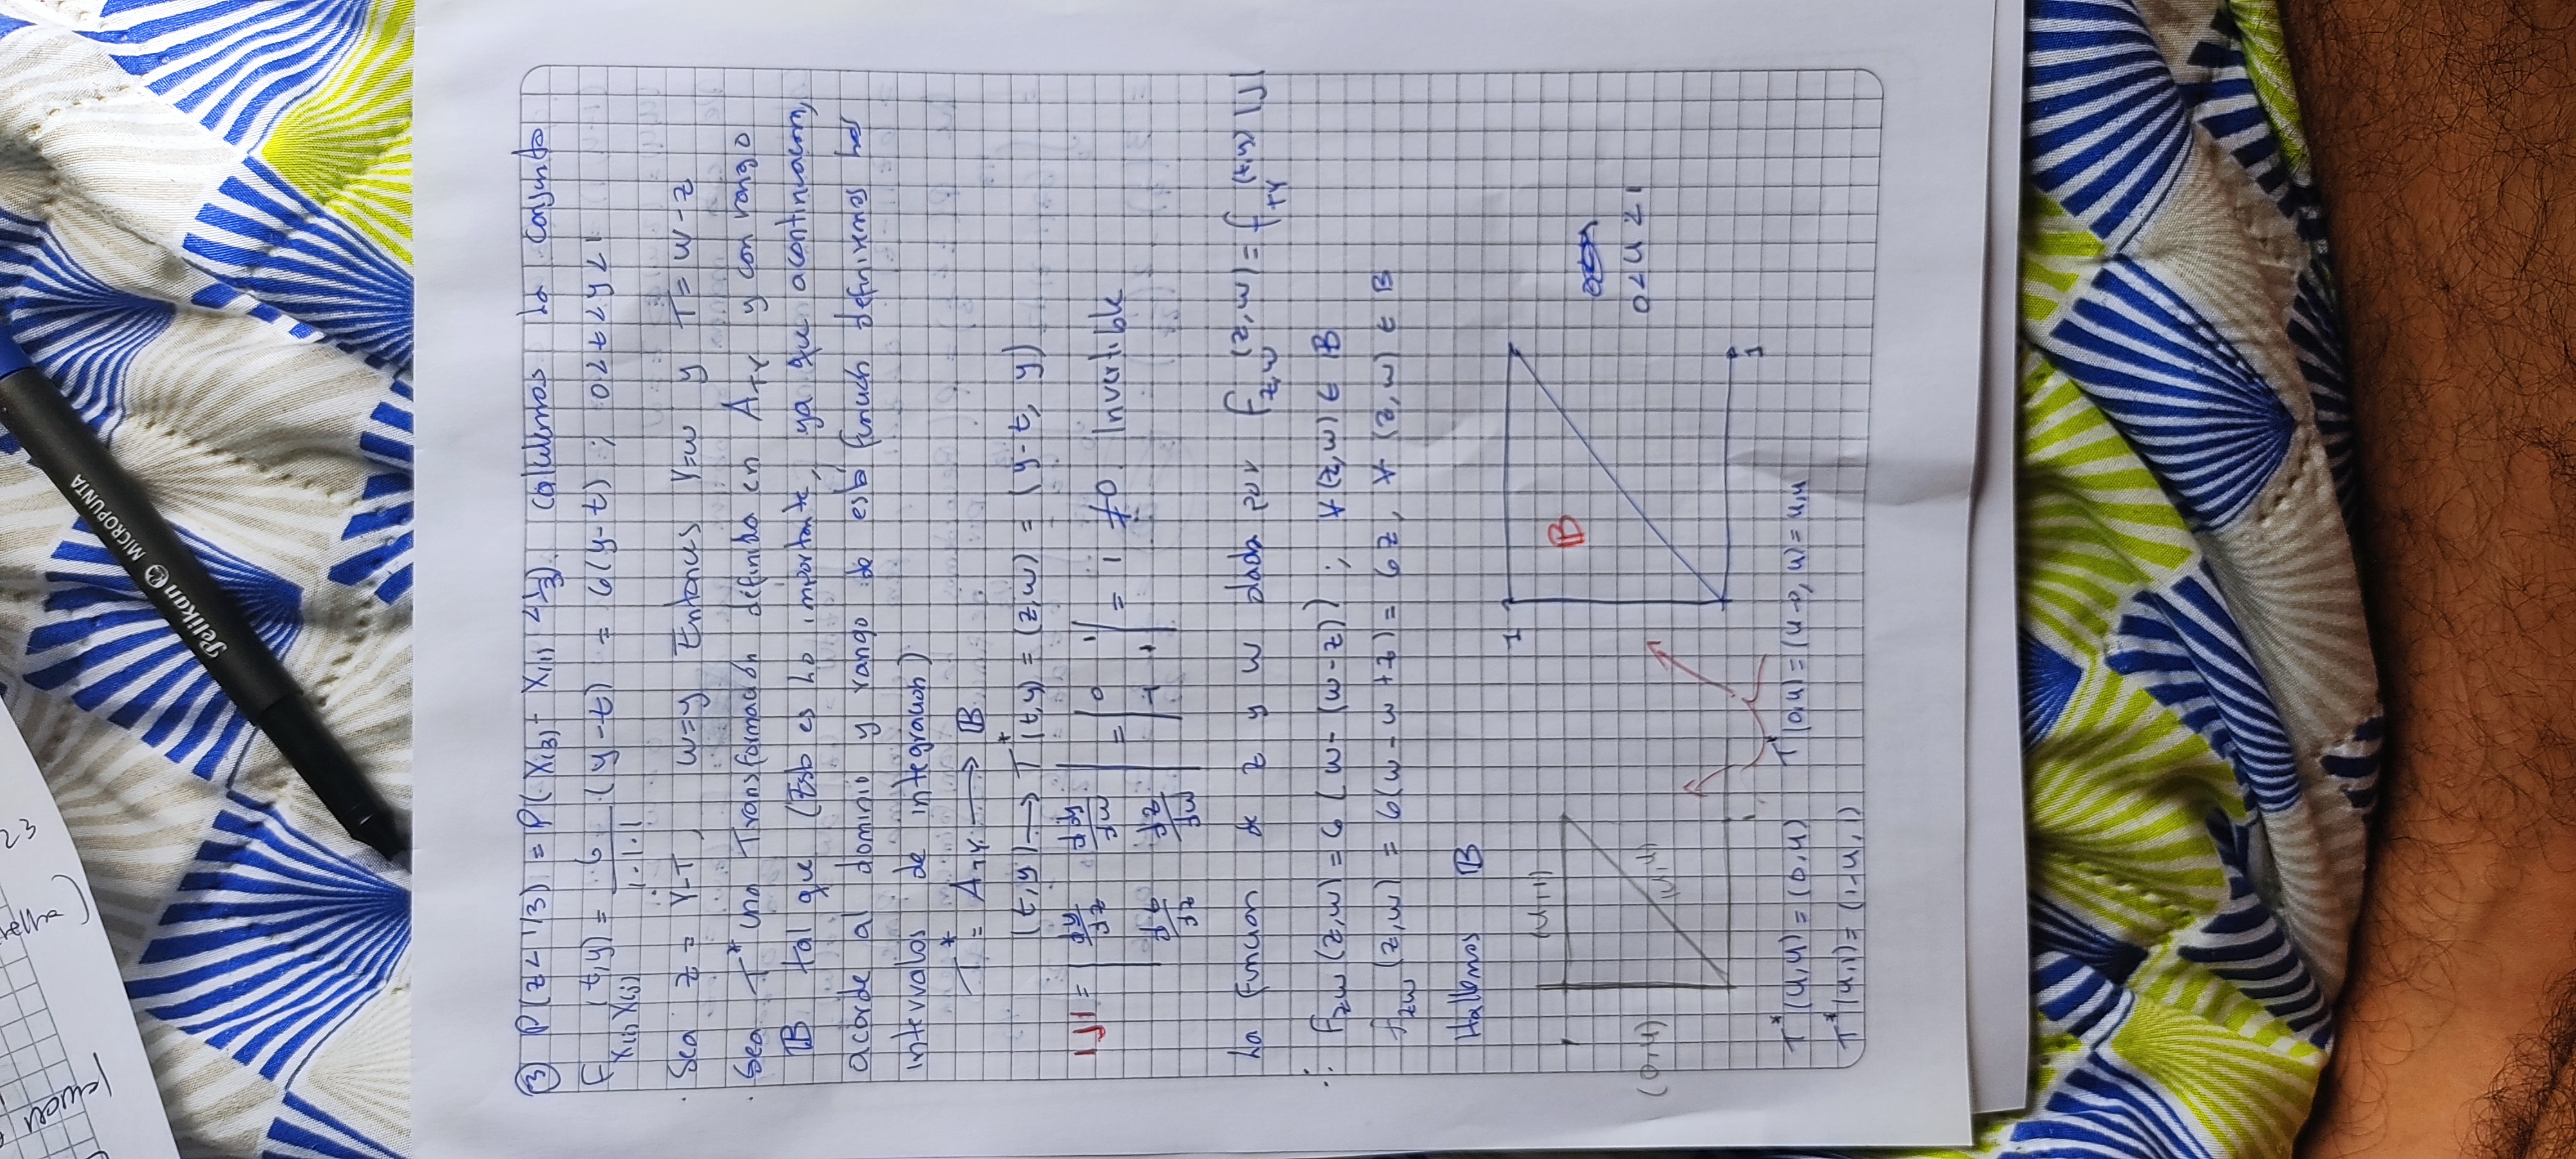 23
Pelikan MICROPUNTA
③ P(z < 1/3) = P( X(3) - X(1) < 1/3). Calculemos la conjunta
f X(1), X(3) (t,y) = 6/1·1·1 (y-t) = 6(y-t) ; 0<t<y<1
· Sea z = Y-T, w=y Entonces Y=w y T=w-z
· Sea T* una Transformación definida en A_TY y con rango
B tal que (Esto es lo importante, ya que acontinuacion,
acorde al dominio y rango de esta función definiremos los
intervalos de integración)
T* = A_TY ⟶ B
(t,y) ⟶ T*(t,y) = (z,w) = (y-t, y)
|J| = | dy/dz dy/dw | = | 0 1 | = 1 ≠ 0. Invertible
| dt/dz dt/dw | | -1 1 |
La funcion de z y w dada por f_z,w (z,w) = f_TY (t,y) |J|
∴ f_zw (z,w) = 6 (w-(w-z)) ; ∀(z,w) ∈ B
f_zw (z,w) = 6(w-w+z) = 6z, ∀ (z,w) ∈ B
Hallemos B
1
(u,1)
B
(0,u)
(u,u)
0<u<1
1
1
T*(u,u) = (0,u) T*(0,u) = (u-0, u) = u,u
T*(u,1) = (1-u, 1)